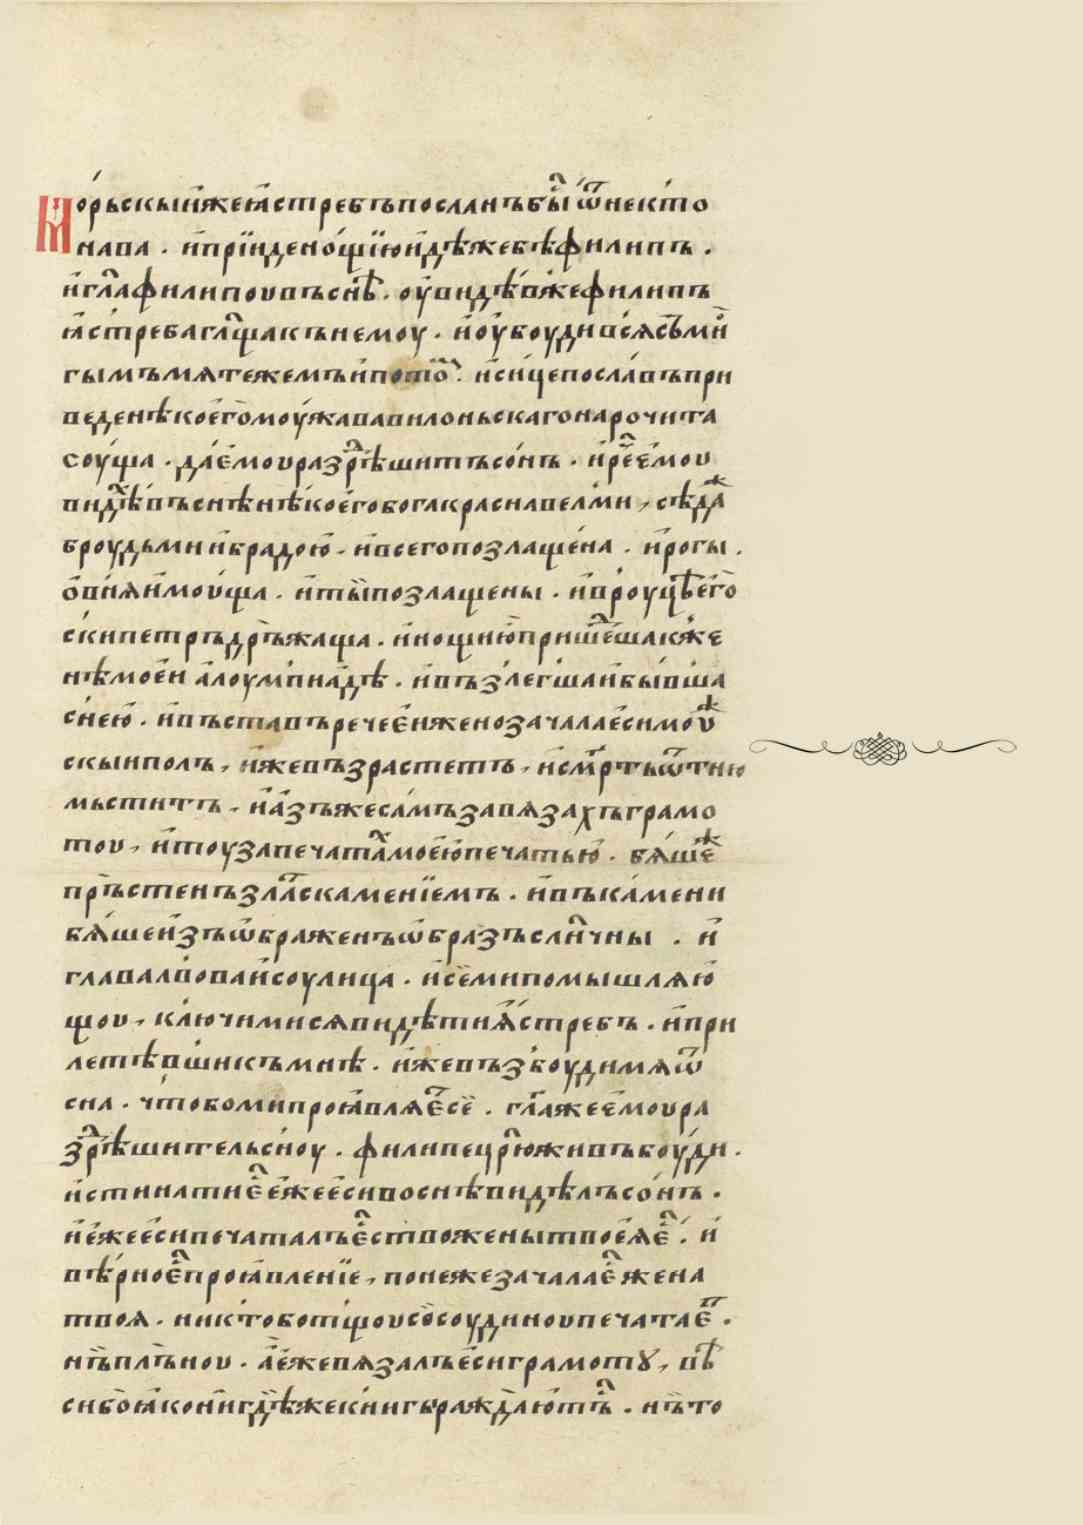 Морьскыи же ꙗстребъ посланъ бы ѿ некто
нава . и прїиде нощїю идѣже бѣ филипъ .
и гл҃а филипоу въ снѣ . оувидѣв же филипъ
ꙗстреба гл҃юща к немоу . и оубоудивсѧ съ мно
гымъ мѧтежемъ и пото . и сице пославъ при
веде нѣкоего моужа вавилоньскаго нарочита
соуща . да емоу разрѣшитъ сонъ . и рече емоу
видѣх въ снѣ нѣкоего бога красна велми , сѣда
броудьми и брадою . и всего позлащена . и рогы .
овнѧ имоуща . и ты позлащены . и в роуцѣ его
скипетръ дръжаща . и нощию пришедша к же
нѣ моеи алоумпиадѣ . и възлегша и бывша
с нею . и въставъ рече еи жено зачала еси моуж
скыи полъ , иже възрастетъ , и смр҃ть ѿтню
мьститъ , и азъ же самъ завѧзахъ грамо
тою , и тоу запечатах моею печатью . бѧше ж
пръстенъ злат с камениемъ . и въ камени
бѧше изъѡбраженъ ѡбразъ слнчны . и
глава лвова и соулица . и се ми помышлѧю
щоу , ключи ми сѧ видѣти ꙗстребъ . и при
летѣвши къ мнѣ . иже възбоуди мѧ ѿ
сна . что во ми проꙗвлѧет се . гл҃аже емоу ра
зрѣшитель сноу . филипе црю живъ боуди .
истинати е еже еси во снѣ видѣлъ сонъ .
и еже еси печаталъ ество жены твоеѧ е . и
вѣрно е проꙗвленїе , понеже зачала е жена
твоѧ . никтобо тщоу сосоудиноу печатает .
нъ плъноу . а еже вѧзалъ еси грамотꙋ , въ
сибо ꙗко ни гдѣже книгы раждаютъ . нъ то